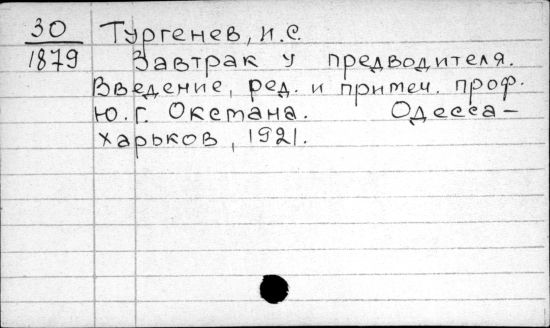 30 Тургенев, И.С.
1879 Завтрак у предводителя.
Введение, ред. и примеч. проф.
Ю.Г. Оксмана. Одесса-
Харьков, 1921.